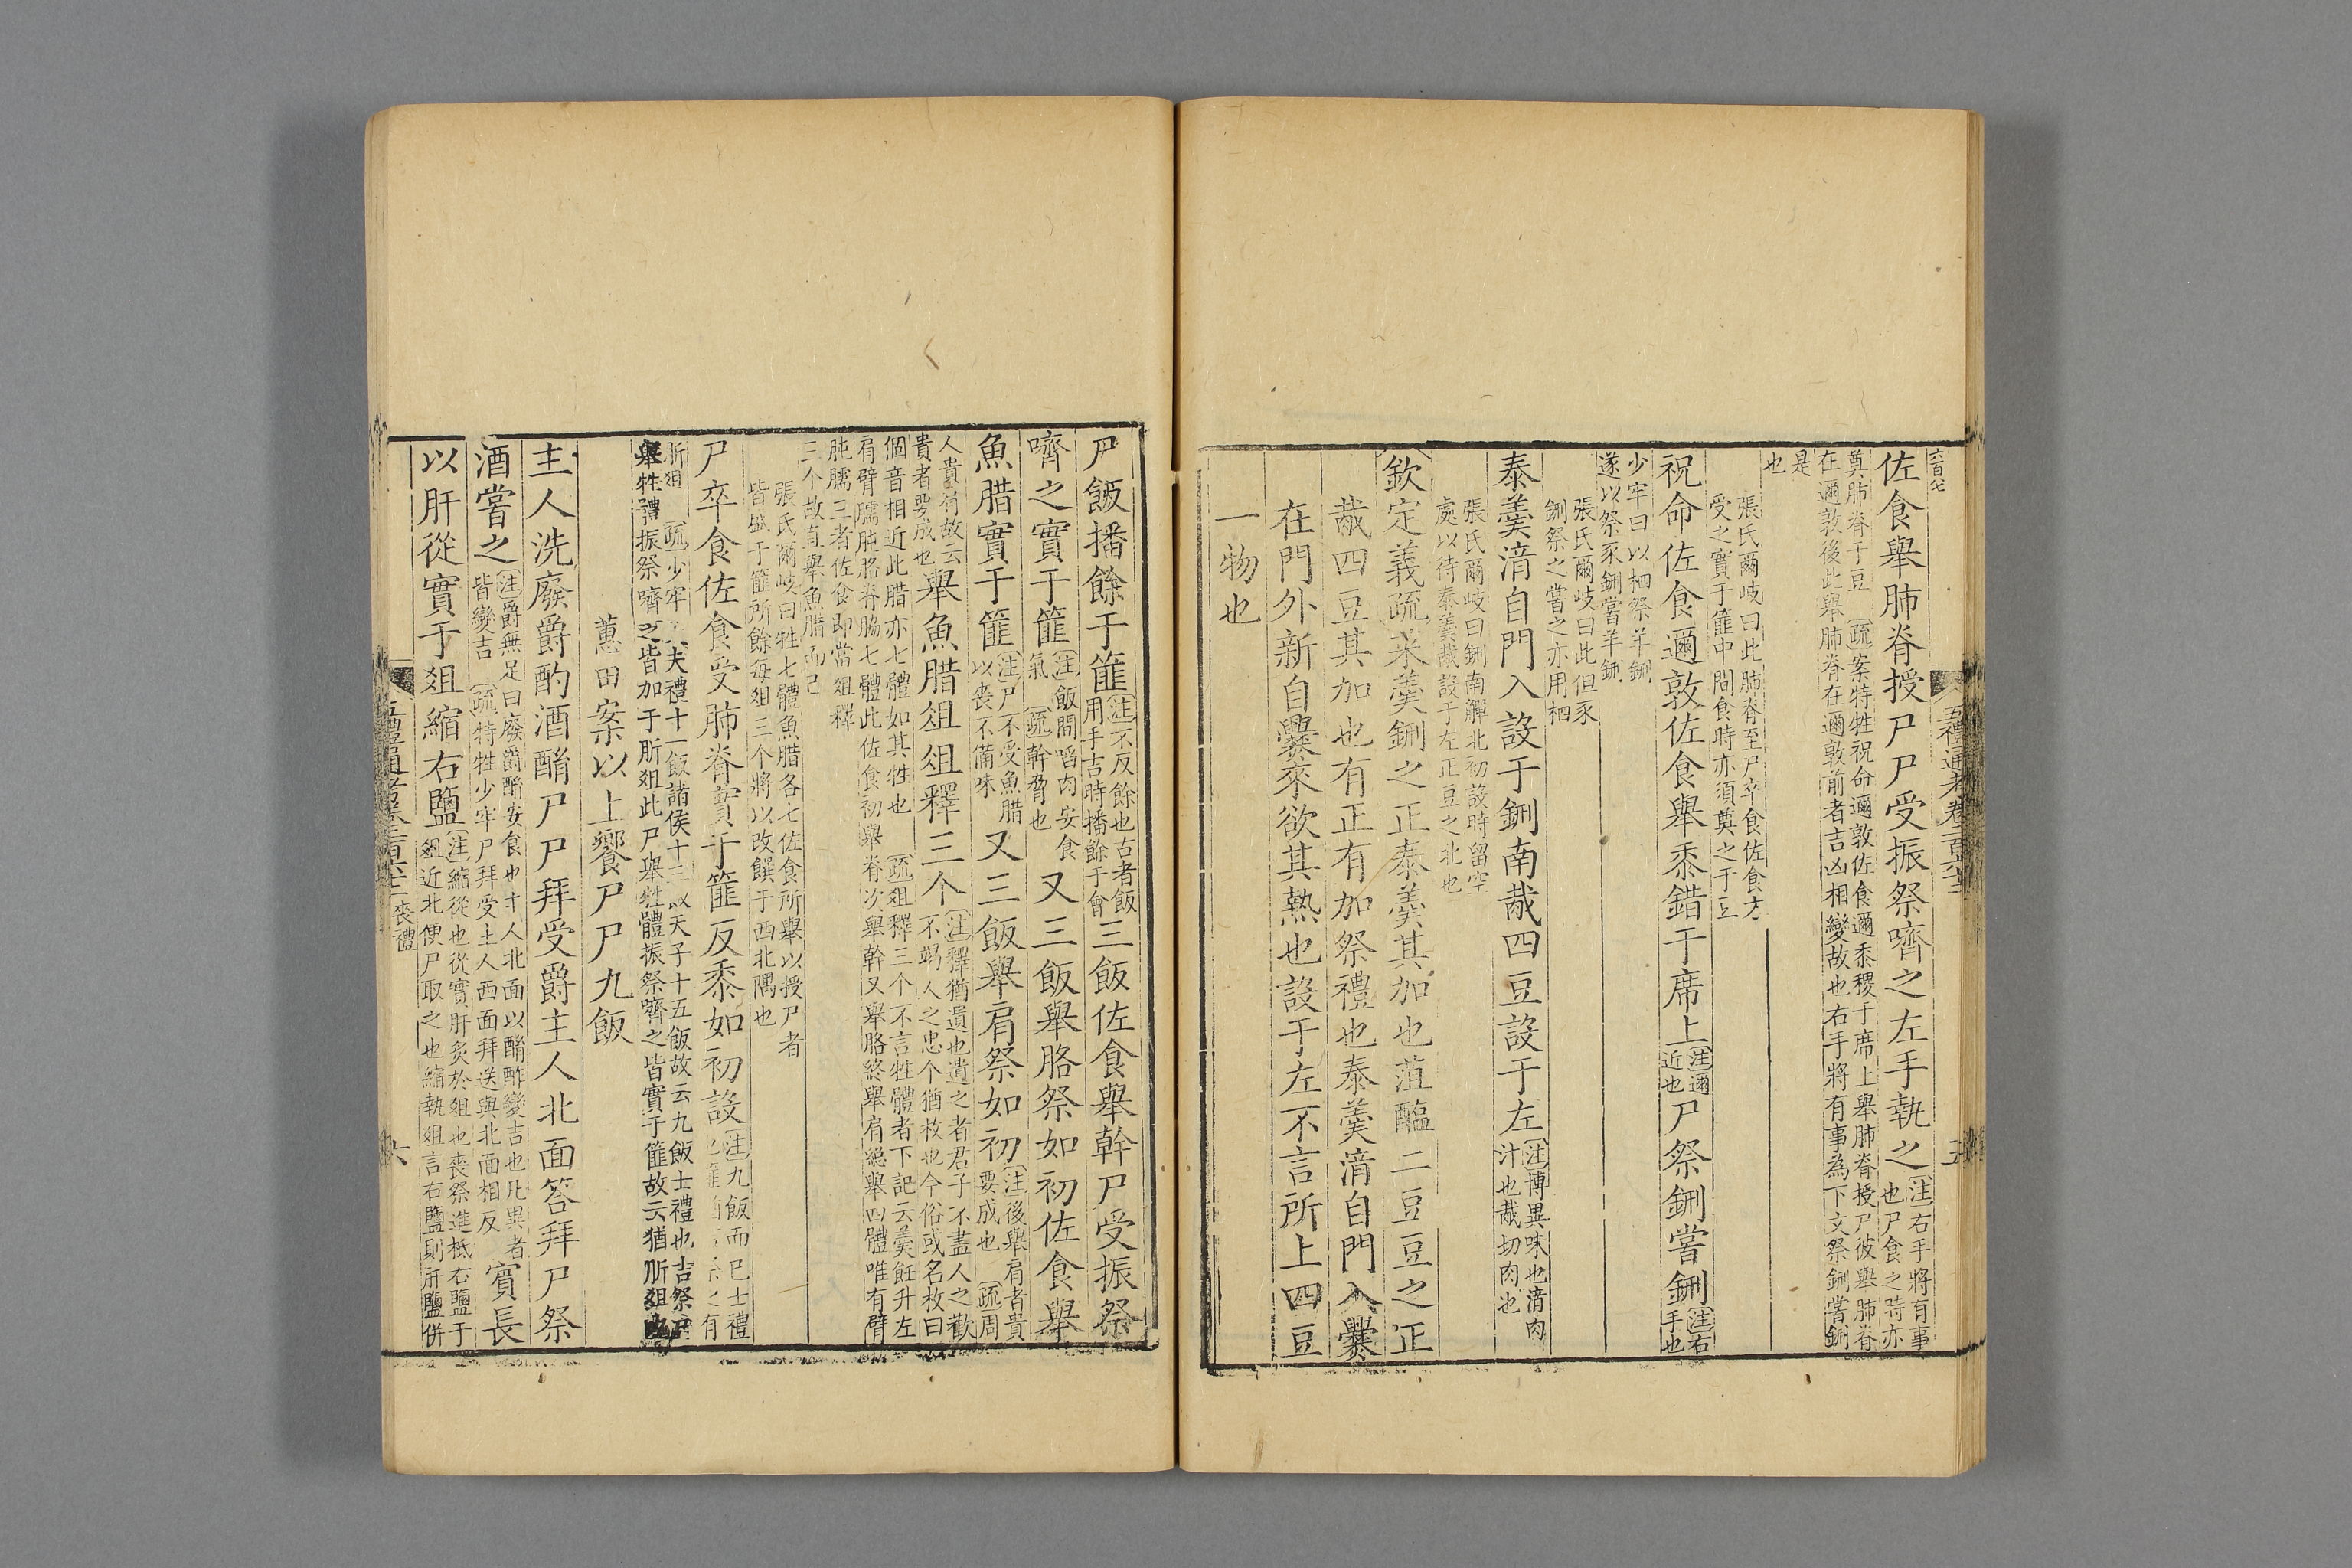 六百七
佐食舉肺脊授尸尸受振祭嚌之左手執之注右手將有事也尸食之時亦
奠肺脊于豆疏案特牲祝命邇敦佐食邇黍稷于席上舉肺脊授尸彼舉肺脊
在邇敦後此舉肺脊在邇敦前者吉凶相變故也右手將有事為下文祭鉶嘗鉶
是
也
張氏爾岐曰此肺脊至尸卒食佐食方
受之實于篚中間食時亦須奠之于豆
祝命佐食邇敦佐食舉黍錯于席上注邇近也尸祭鉶嘗鉶注右手也
少牢曰以柶祭羊鉶
遂以祭豕鉶嘗羊鉶
張氏爾岐曰此但豕
鉶祭之嘗之亦用柶
泰羹湆自門入設于鉶南胾四豆設于左注博異味也湆肉汁也胾切肉也
張氏爾岐曰鉶南觶北初設時留空
處以待泰羹胾設于左正豆之北也
欽定義疏菜羹鉶之正泰羹其加也菹醢二豆豆之正
胾四豆其加也有正有加祭禮也泰羹湆自門入爨
在門外新自爨來欲其熱也設于左不言所上四豆
一物也
五禮通考卷二百六十二
五
尸飯播餘于篚注不反餘也古者飯用手吉時播餘于會三飯佐食舉幹尸受振祭
嚌之實于篚注飯間啗肉安食氣疏幹脅也又三飯舉胳祭如初佐食舉
魚腊實于篚注尸不受魚腊以喪不備味又三飯舉肩祭如初注後舉肩者貴要成也疏周
人貴肩故云
貴者要成也舉魚腊俎俎釋三个注釋猶遺也遺之者君子不盡人之歡不竭人之忠个猶枚也今俗或名枚曰
個音相近此腊亦七體如其牲也疏俎釋三个不言牲體者下記云羹飪升左
肩臂臑肫胳脊脇七體此佐食初舉脊次舉幹又舉胳終舉肩總舉四體唯有臂
肫臑三者佐食即當俎釋
三个故直舉魚腊而已
張氏爾岐曰牲七體魚腊各七佐食所舉以授尸者
皆盛于篚所餘每俎三个將以改饌于西北隅也
尸卒食佐食受肺脊實于篚反黍如初設注九飯而已士禮也篚猶之有
肵俎疏少牢大夫禮十一飯諸侯十三飯天子十五飯故云九飯士禮也吉祭尸
舉牲體振祭嚌之皆加于肵俎此尸舉牲體振祭嚌之皆實于篚故云猶肵俎也
蕙田案以上饗尸尸九飯
主人洗廢爵酌酒酳尸尸拜受爵主人北面答拜尸祭
酒嘗之注爵無足曰廢爵酳安食也主人北面以酳酢變吉也凡異者皆變吉疏特牲少牢尸拜受主人西面拜送與北面相反賓長
以肝從實于俎縮右鹽注縮從也從實肝炙於俎也喪祭進柢右鹽于俎近北便尸取之也縮執俎言右鹽則肝鹽併
五禮通考卷二百六十二喪禮
六